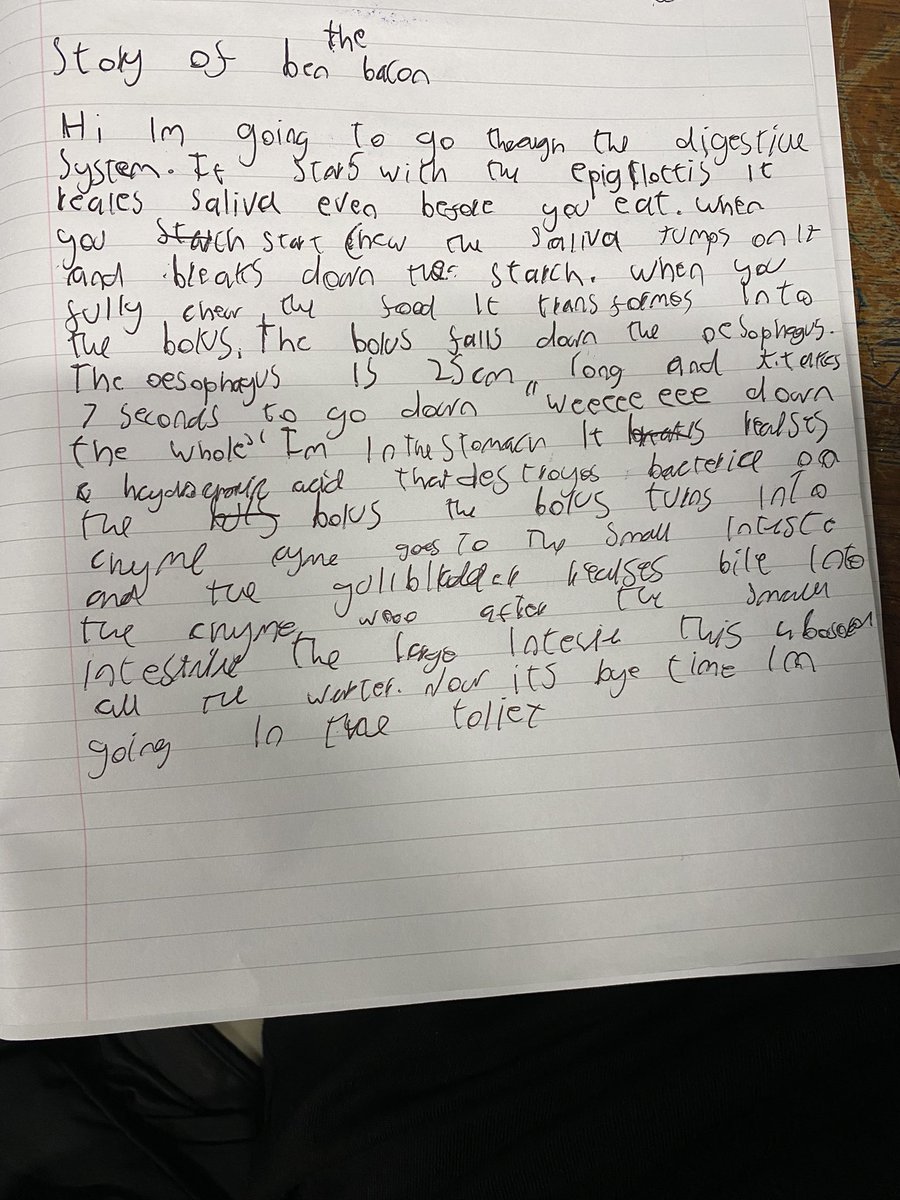 Story of ben the bacon
Hi Im going to go theough the digestive
System. It Stars with the epigflottis it
reales saliva even before you eat. when
you starch start chew the saliva jumps on it
and breaks down the starch. when you
fully chew the food it transformes into
the bolus. The bolus falls down the oesophagus.
The oesophagus is 25cm long and it takes
7 seconds to go down "weeeee eee down
the whole" Im in the stomach it is realses
a acid that destroyes bacterice on
the bolus the bolus turns into
chyme cyme goes to the small intestc
and the gallbladder realses bile into
the chyme, wooo after the smaller
intestine the large intesie this absoen
all the warter. Now its bye time Im
going in the toliet